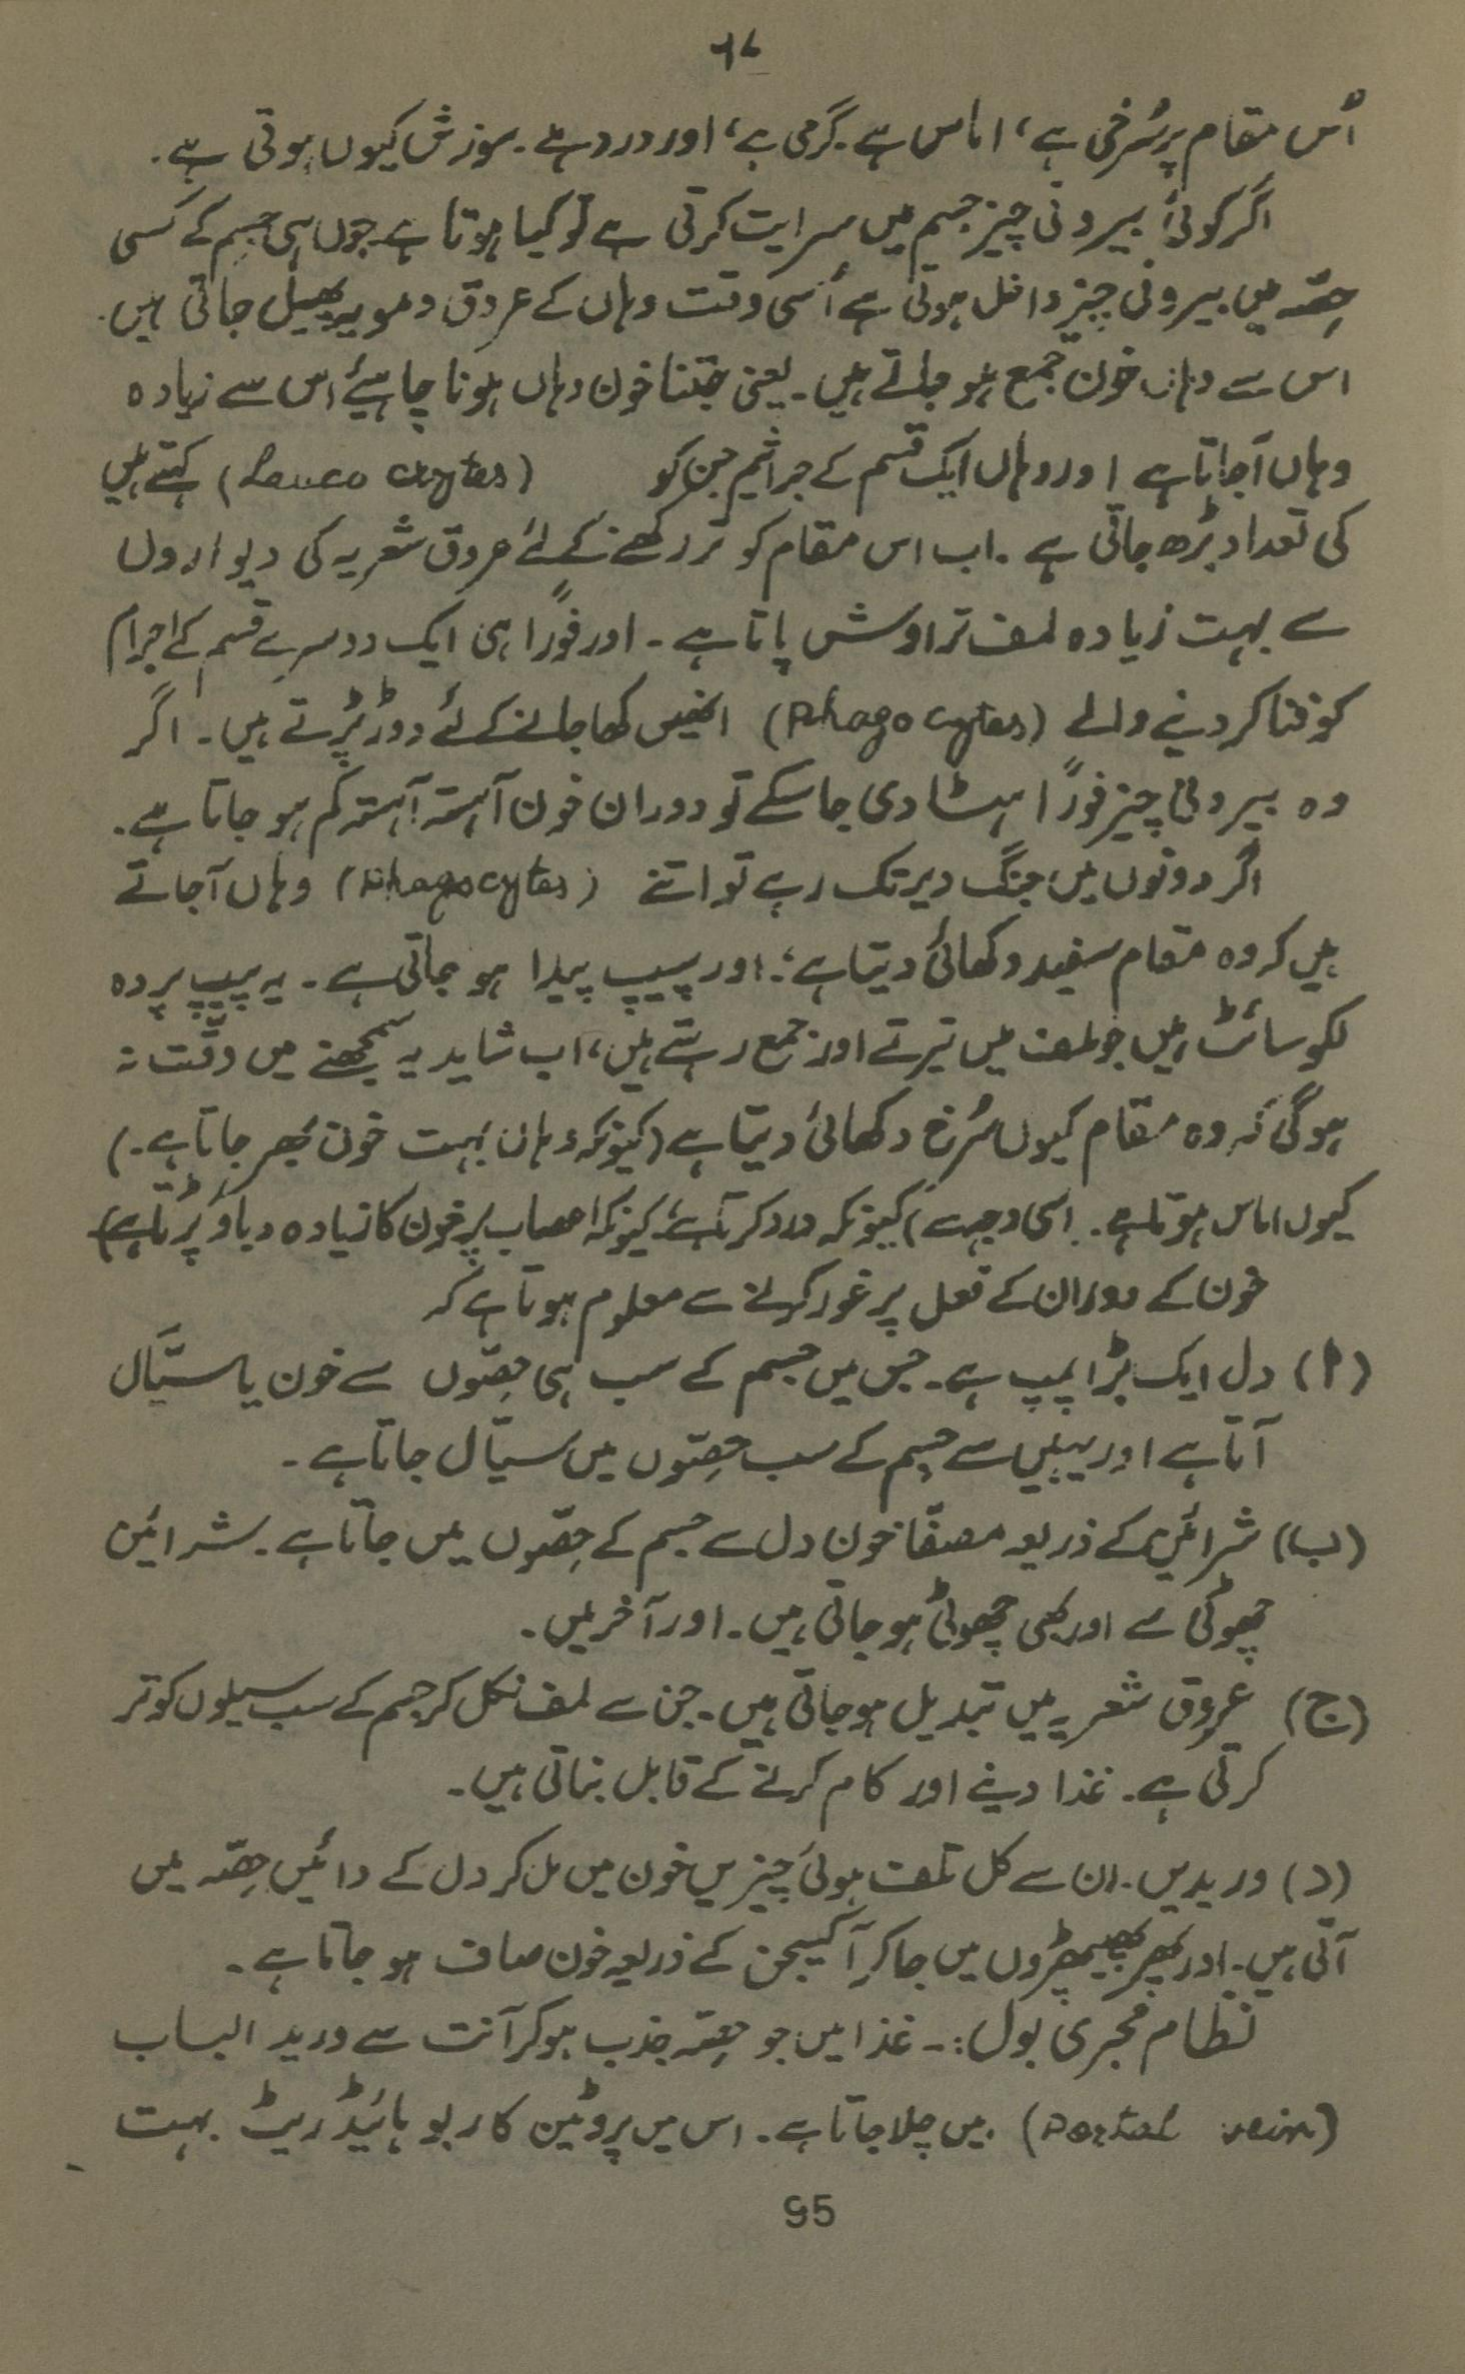 ۹۷
اُس مقام پر سُرخی ہے، اماس ہے۔ گرمی ہے، اور درد ہے۔ سوزش کیوں ہوتی ہے۔
اگر کوئی بیرونی چیز جسم میں سرایت کرتی ہے تو کیا ہوتا ہے۔ جوں ہی جسم کے کسی
حِصّہ میں بیرونی چیز داخل ہوتی ہے اُسی وقت وہاں کے عروق دمویہ پھیل جاتی ہیں۔
اس سے وہاں خون جمع ہو جاتے ہیں۔ یعنی جتنا خون وہاں ہونا چاہیئے اس سے زیادہ
وہاں آجاتا ہے اور وہاں ایک قسم کے جراثیم جن کو (Leuco cytes) کہتے ہیں
کی تعداد بڑھ جاتی ہے۔ اب اس مقام کو تر رکھنے کے لئے عروق شعریہ کی دیواروں
سے بہت زیادہ لمف تراوش پاتا ہے۔ اور فوراً ہی ایک دوسرے قسم کے اجرام
کو فنا کر دینے والے (Phago cytes) انھیں کھا جانے کے لئے دوڑ پڑتے ہیں۔ اگر
وہ بیرونی چیز فوراً ہٹا دی جا سکے تو دوران خون آہستہ آہستہ کم ہو جاتا ہے۔
اگر دونوں میں جنگ دیر تک رہے تو اتنے (Phagocytes) وہاں آجاتے
ہیں کہ وہ مقام سفید دکھائی دیتا ہے؛ اور پیپ پیدا ہو جاتی ہے۔ یہ پیپ پردہ
لکوسائٹ ہیں جو لمف میں تیرتے اور جمع رہتے ہیں، اب شاید یہ سمجھنے میں دقّت نہ
ہوگی کہ وہ مقام کیوں سُرخ دکھائی دیتا ہے (کیونکہ وہاں بہت خون بھر جاتا ہے۔)
کیوں اماس ہوتا ہے۔ اسی وجہ سے) کیونکہ درد کرتا ہے؛ کیونکہ اعصاب پر خون کا زیادہ دباؤ پڑتا ہے)
خون کے دوران کے فعل پر غور کرنے سے معلوم ہوتا ہے کہ
(ا) دل ایک بڑا پمپ ہے۔ جس میں جسم کے سب ہی حِصّوں سے خون یا سیّال
آتا ہے اور یہیں سے جسم کے سب حِصّوں میں سیّال جاتا ہے۔
(ب) شرائین کے ذریعہ مصفّا خون دل سے جسم کے حِصّوں میں جاتا ہے۔ شرائین
چھوٹی سے اور بھی چھوٹی ہو جاتی ہیں۔ اور آخر میں۔
(ج) عروق شعریہ میں تبدیل ہو جاتی ہیں۔ جن سے لمف نکل کر جسم کے سب سیلوں کو تر
کرتی ہے۔ غذا دینے اور کام کرنے کے قابل بناتی ہیں۔
(د) وریدیں۔ ان سے کل تلف ہوئی چیزیں خون میں مل کر دل کے دائیں حِصّہ میں
آتی ہیں۔ اور پھر پھیپھڑوں میں جا کر آکسیجن کے ذریعہ خون صاف ہو جاتا ہے۔
نظام مجریٰ بول:۔ غذا میں جو حِصّہ جذب ہو کر آنت سے ورید الباب
(Portal vein) میں چلا جاتا ہے۔ اس میں پروٹین کاربوہائیڈریٹ بہت
95